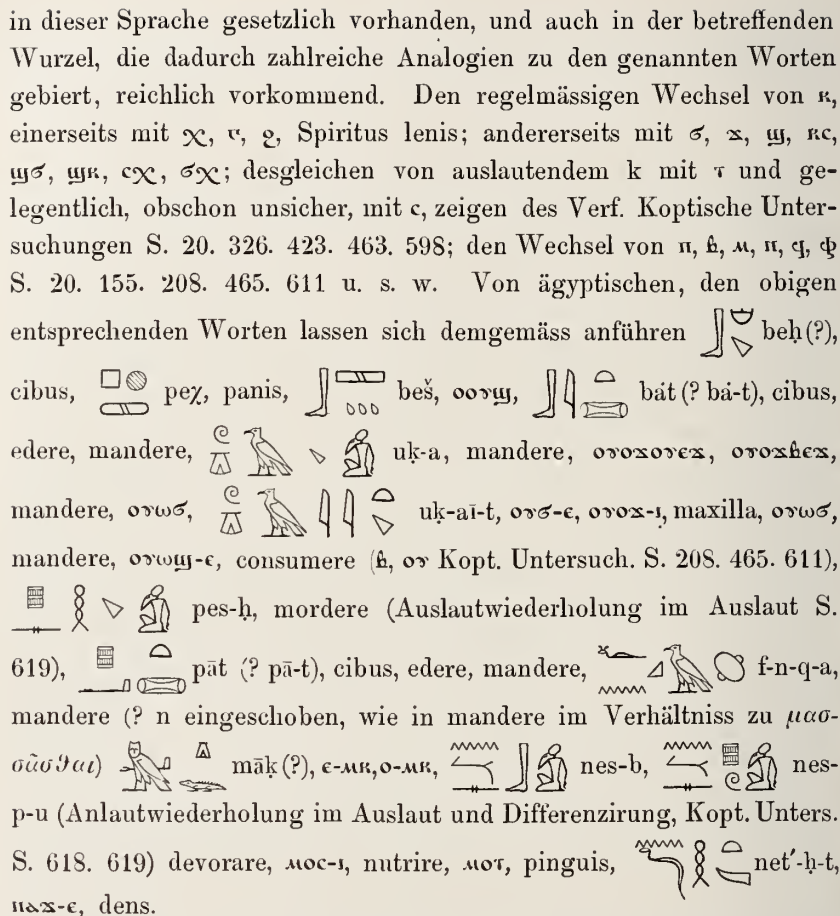 in dieser Sprache gesetzlich vorhanden, und auch in der betreffenden
Wurzel, die dadurch zahlreiche Analogien zu den genannten Worten
gebiert, reichlich vorkommend. Den regelmässigen Wechsel von ⲕ,
einerseits mit ⲭ, ϩ, Spiritus lenis; andererseits mit ϭ, ϫ, ϣ, ⲕⲥ,
ϣϭ, ϣⲕ, ⲥⲭ, ϭⲭ; desgleichen von auslautendem k mit ⲧ und ge-
legentlich, obschon unsicher, mit ⲥ, zeigen des Verf. Koptische Unter-
suchungen S. 20. 326. 423. 463. 598; den Wechsel von ⲡ, ⲃ, ⲙ, ⲛ, ϥ, ⲫ
S. 20. 155. 208. 465. 611 u. s. w. Von ägyptischen, den obigen
entsprechenden Worten lassen sich demgemäss anführen beḥ (?),
cibus, peχ, panis, beš, ⲟⲟⲩϣ, bát (? bá-t), cibus,
edere, mandere, uḳ-a, mandere, ⲟⲩⲟϫⲟⲩⲉϫ, ⲟⲩⲟϫⲃⲉϫ,
mandere, ⲟⲩⲱϭ, uḳ-aī-t, ⲟⲩϭ-ⲉ, ⲟⲩⲟϫ-ⲓ, maxilla, ⲟⲩⲱϭ,
mandere, ⲟⲩⲱϣ-ⲉ, consumere (ⲃ, ⲟⲩ Kopt. Untersuch. S. 208. 465. 611),
pes-ḥ, mordere (Auslautwiederholung im Auslaut S.
619), pāt (? pā-t), cibus, edere, mandere, f-n-q-a,
mandere (? n eingeschoben, wie in mandere im Verhältniss zu μασ-
σᾶσθαι) māḳ (?), ⲉ-ⲙⲕ, ⲟ-ⲙⲕ, nes-b, nes-
p-u (Anlautwiederholung im Auslaut und Differenzirung, Kopt. Unters.
S. 618. 619) devorare, ⲙⲟⲥ-ⲓ, nutrire, ⲙⲟⲧ, pinguis, net′-ḥ-t,
ⲛⲁϫ-ⲉ, dens.